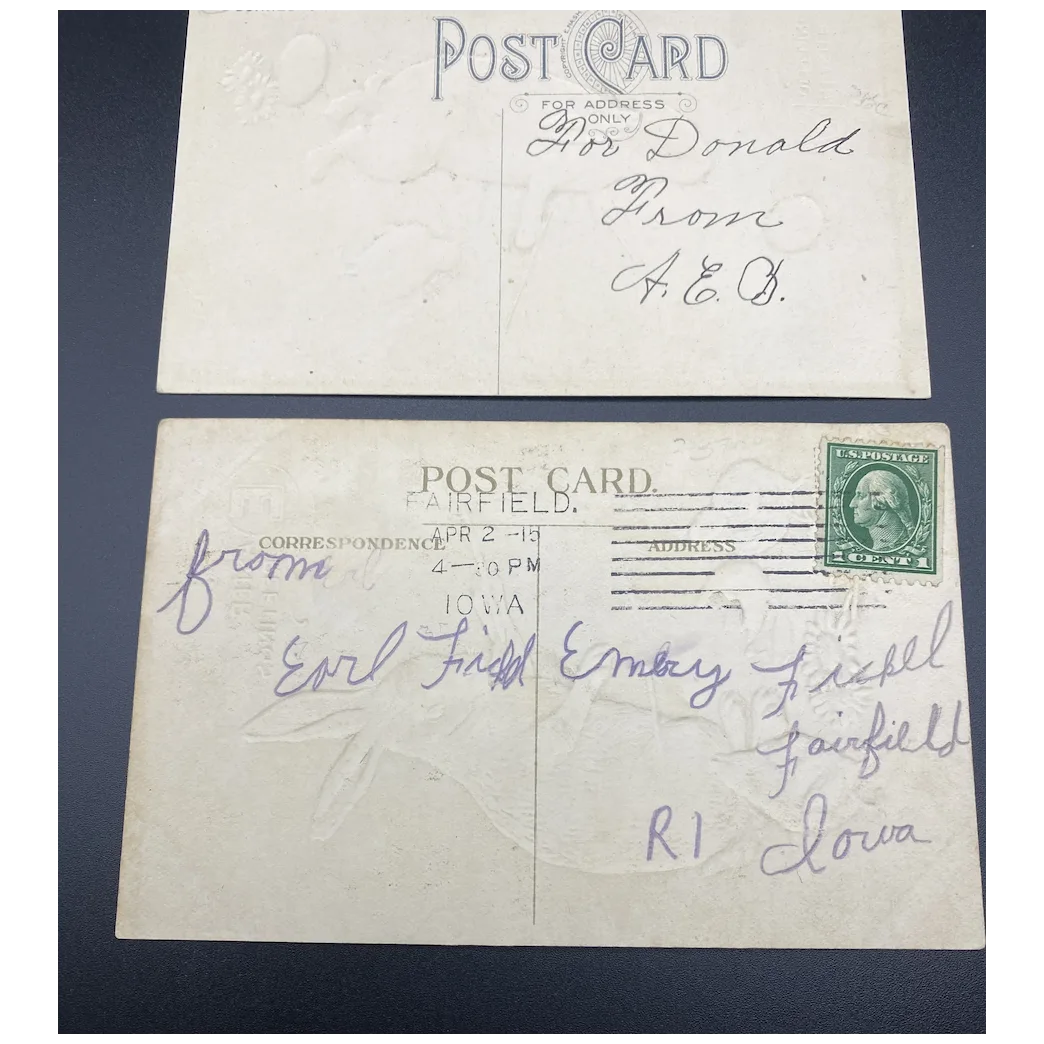 POST CARD
FOR ADDRESS
ONLY
For Donald
From
A. E. D.
POST CARD.
U.S. POSTAGE
1 CENT 1
FAIRFIELD.
APR 2 -15
4— 0 PM
IOWA
CORRESPONDENCE
ADDRESS
from
Earl Emery
Fairfield
R1 Iowa